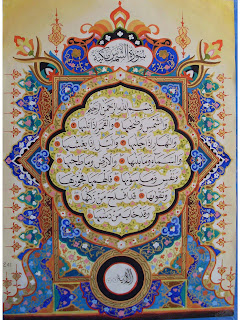 سورة الشمس مكية
بسم الله الرحمن الرحيم
والشمس وضحىها والقمر إذا تلىها
والنهار إذا جلىها واليل إذا يغشىها
والسماء وما بنىها والأرض وما طحىها
ونفس وما سوىها فألهمها فجورها
وتقوىها قد أفلح من زكىها
وقد خاب من دسىها